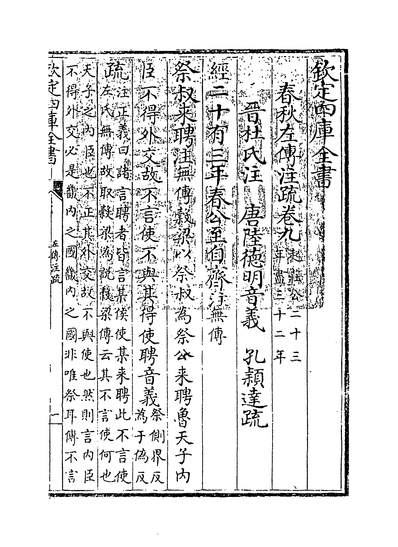 欽定四庫全書
春秋左傳注疏卷九 起莊公二十三年盡三十二年
晉杜氏注 唐陸德明音義 孔穎達疏
經二十有三年春公至自齊注無傳
祭叔来聘注無傳穀梁以祭叔為祭公来聘魯天子内
臣不得外交故不言使不與其得使聘音義祭側界反為于偽反
疏注正義曰諸言聘者皆言某侯使某来聘此不言使
左氏無傳故取穀梁為說穀梁傳云其不言使何也
天子之内臣也不正其外交故不與使也然則言内臣
不得外交必是畿内之國畿内之國非唯祭耳傳不言
欽定四庫全書
左傳注疏
一